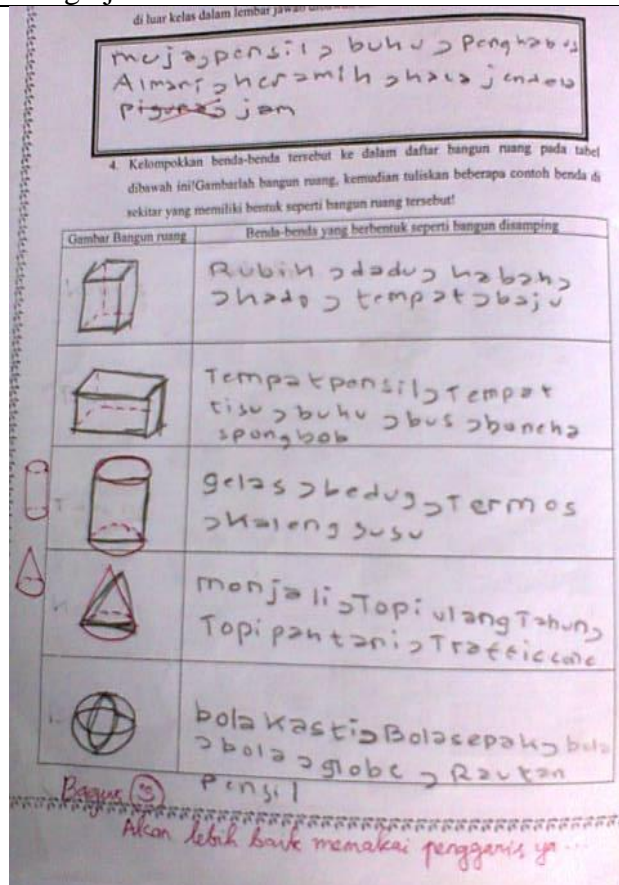 di luar kelas dalam lembar jawab
meja, pensil, buku, penghapus
Almari, keramik, kaca jendela
jam
4. Kelompokkan benda-benda tersebut ke dalam daftar bangun ruang pada tabel
dibawah ini!Gambarlah bangun ruang, kemudian tuliskan beberapa contoh benda di
sekitar yang memiliki bentuk seperti bangun ruang tersebut!
Gambar Bangun ruang
Benda-benda yang berbentuk seperti bangun disamping
Rubik, dadu, kabah,
, kado, tempat, baju
Tempat pensil, Tempat
tisu, buku, bus, boneka
spongbob
gelas, bedug, Termos
, Kaleng susu
monjali, Topi ulang Tahun,
Topi pak tani, Traffic cone
bola kasti, Bola sepak, bola
, bola, globe, Rautan
Pensil
Bagus
Akan lebih baik memakai penggaris ya...